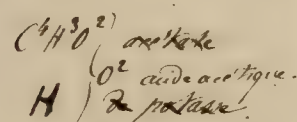 C⁴H³O²) acétate
O² acide acétique.
H de potasse.